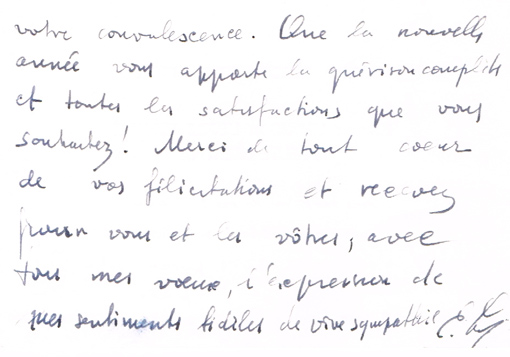 votre convalescence. Que la nouvelle
année vous apporte la guérison complète
et toutes les satisfactions que vous
souhaitez! Merci de tout coeur
de vos félicitations et recevez
pour vous et les vôtres, avec
tous mes voeux, l'expression de
mes sentiments fidèles de vive sympathie